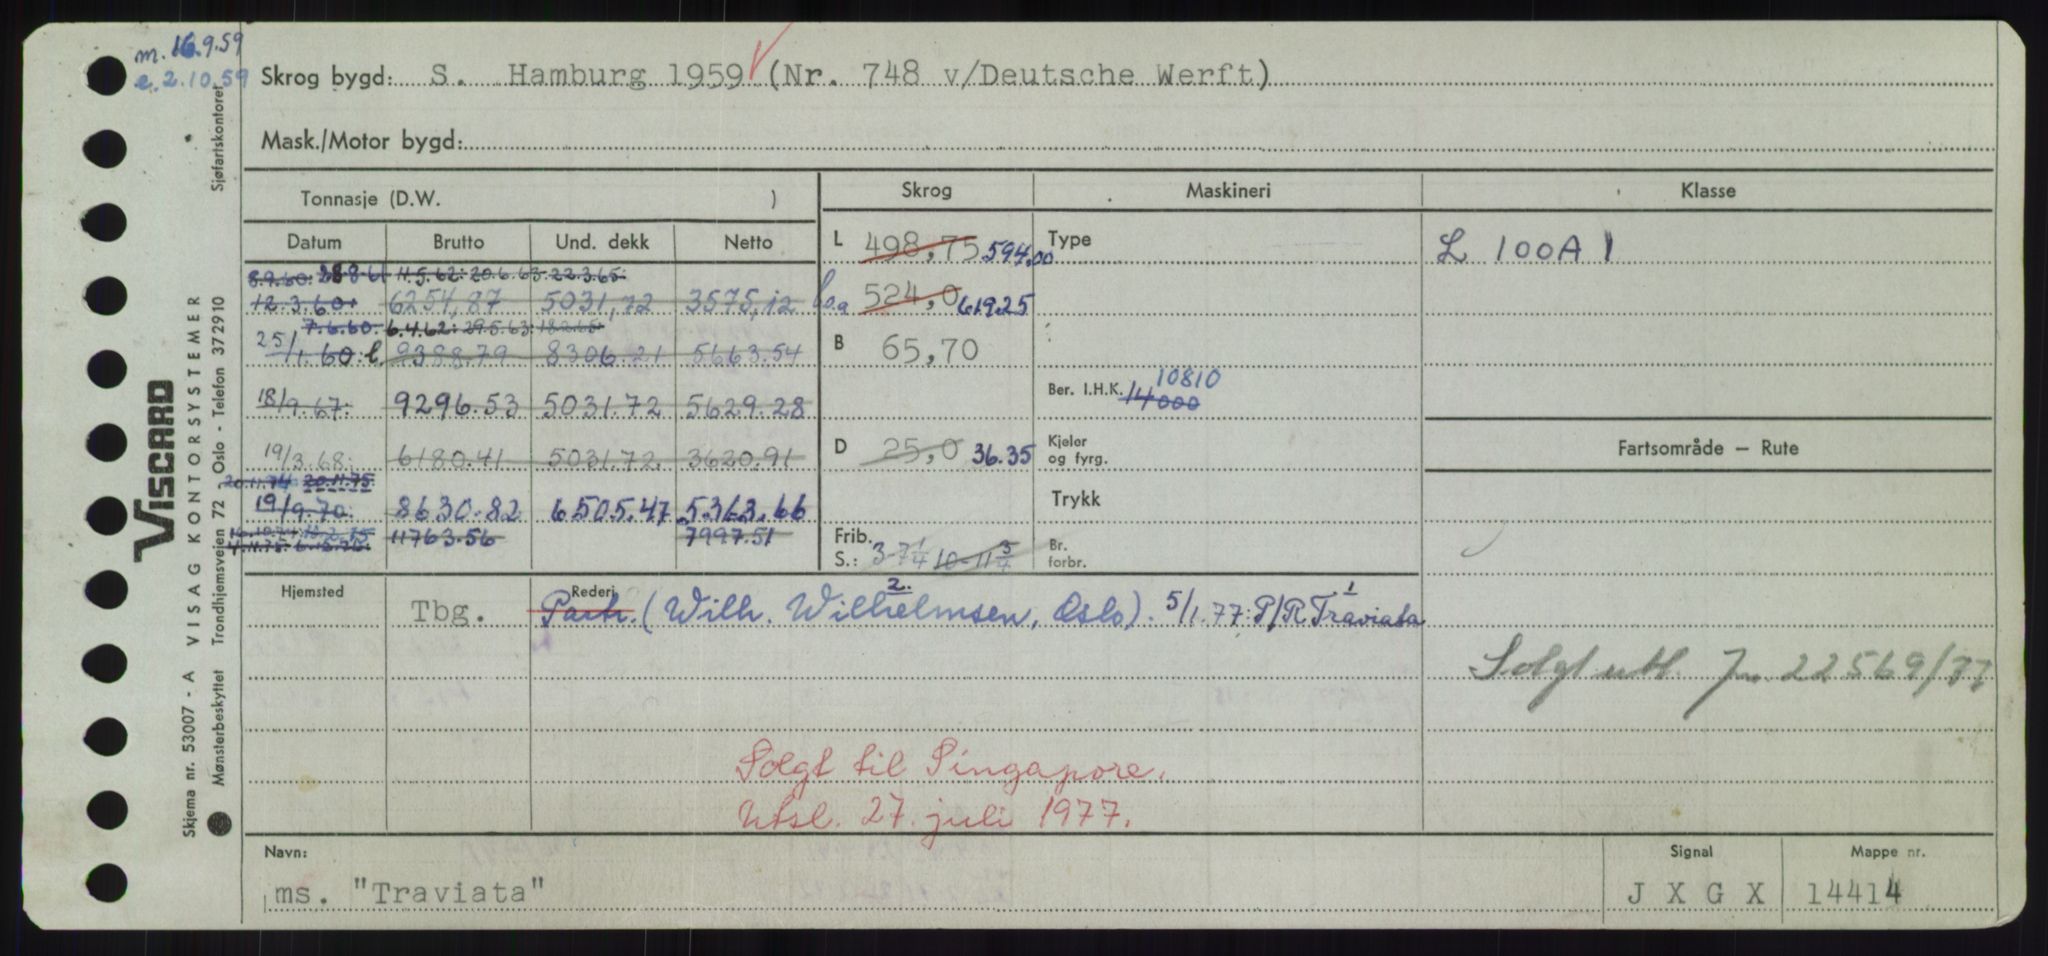 m. 16.9.59
e. 2.10.59
Skrog bygd: S. Hamburg 1959 (Nr. 748 v/Deutsche Werft)
Mask./Motor bygd:
Tonnasje (D.W. )
Skrog Maskineri Klasse
Datum Brutto Und. dekk Netto
L 498,75 594,00 Type L 100A1
8.9.60. 11.5.62: 20.6.63. 22.3.65.
12.3.60. 6254,87 5031,72 3575,12
524,0 619.25
7.6.60. 6.4.62: 29.5.63. 18.2.65.
25/1.60. 9388.79 8306.21 5663.54
B 65,70
18/9.67. 9296.53 5031.72 5629.28
Ber. I.H.K. 14000 10810
19/3.68. 6180.41 5031.72. 3620.91
D 25,0 36.35 Kjeler og fyrg.
Fartsområde — Rute
20.11.74 20.11.75.
19/9.70. 8630.82 6505.47 5363.66
Trykk
11763.56 7997.51
Frib. S.: 3-7¼ 10-11¾ Br. forbr.
Hjemsted Rederi
Tbg. Partr. (Wilh. Wilhelmsen, Oslo). 2. 5/1.77: P/R Traviata 1
Solgt utl. Jnr. 22569/77
Solgt til Singapore.
Utsl. 27. juli 1977.
Navn: Signal Mappe nr.
ms. "Traviata" J X G X 14414
VISCARD
VISAG KONTORSYSTEMER
Skjema nr. 53007 - A
Sjøfartskontoret
Mønsterbeskyttet Trondhjemsveien 72 - Oslo - Telefon 372910